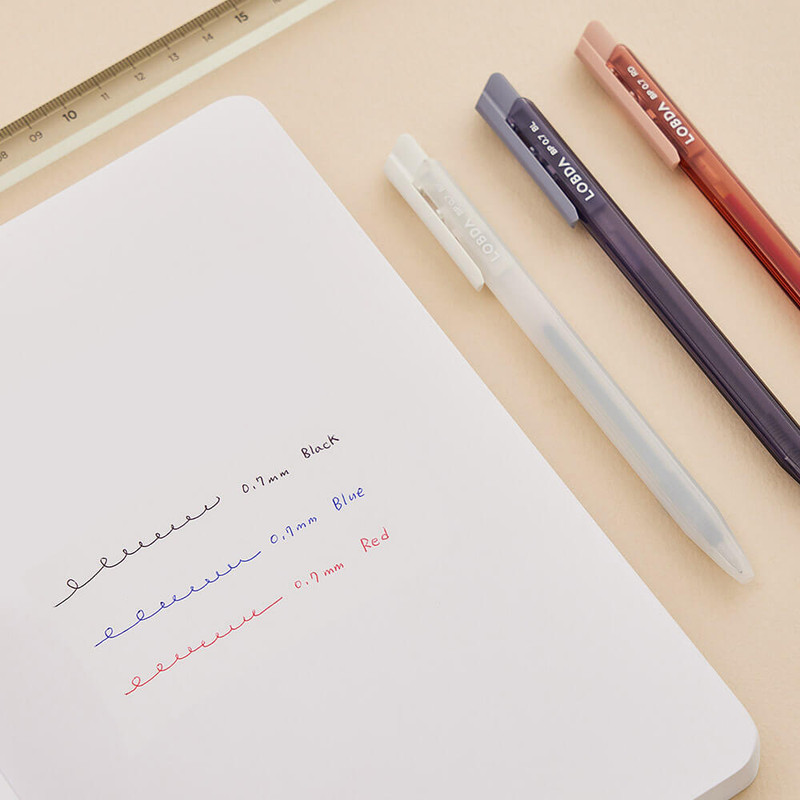 08 09 10 11 12 13 14 15
LOBDA
LOBDA BP 0.7 BL
LOBDA BP 0.7 RD
0.7mm Black
0.7mm Blue
0.7mm Red